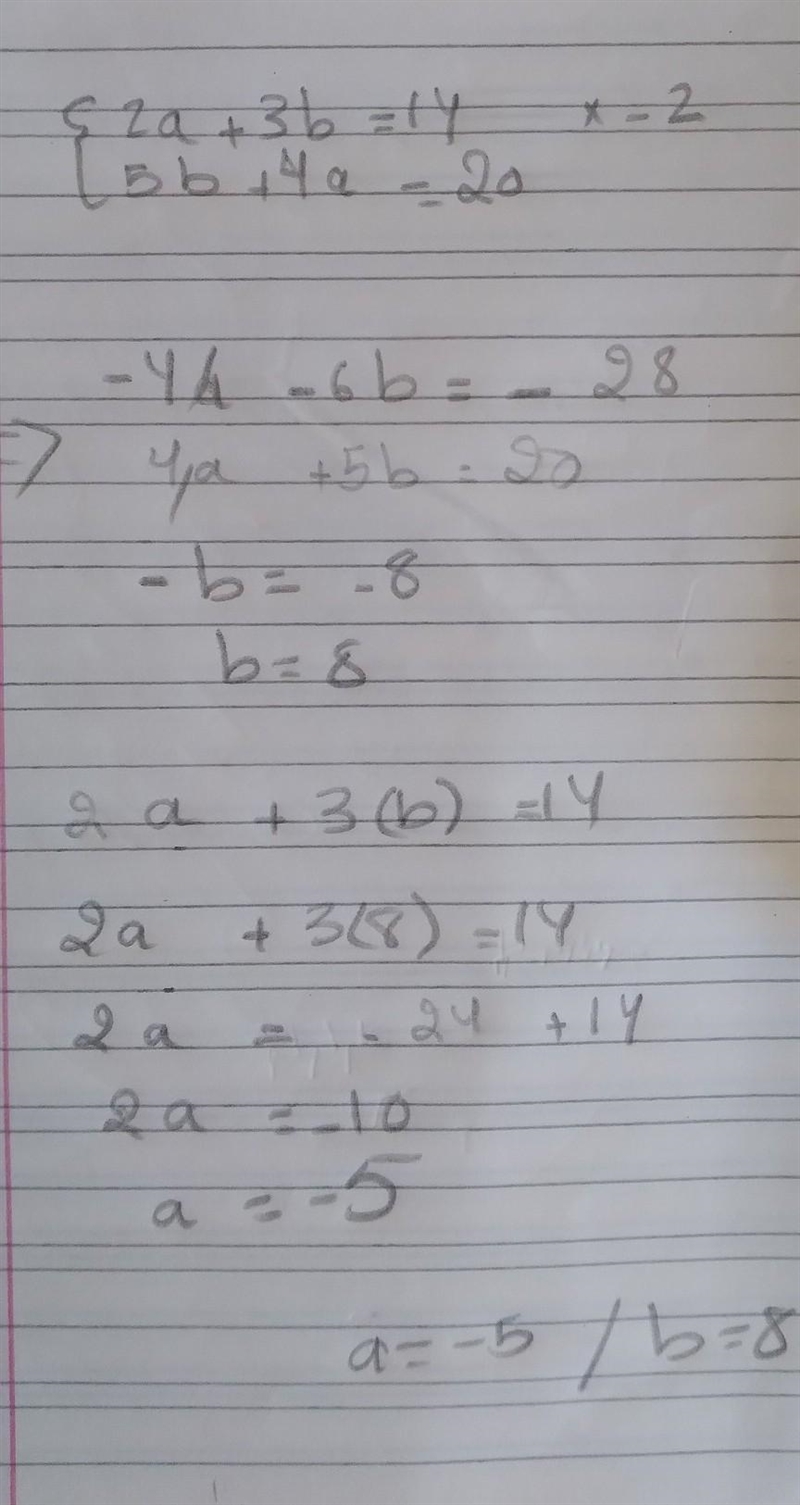 { 2a + 3b = 14 × - 2
5b + 4a = 20
-4a - 6b = - 28
=> 4a + 5b = 20
- b = - 8
b = 8
2 a + 3 (b) = 14
2a + 3(8) = 14
2 a = - 24 + 14
2a = -10
a = -5
a = -5 / b = 8